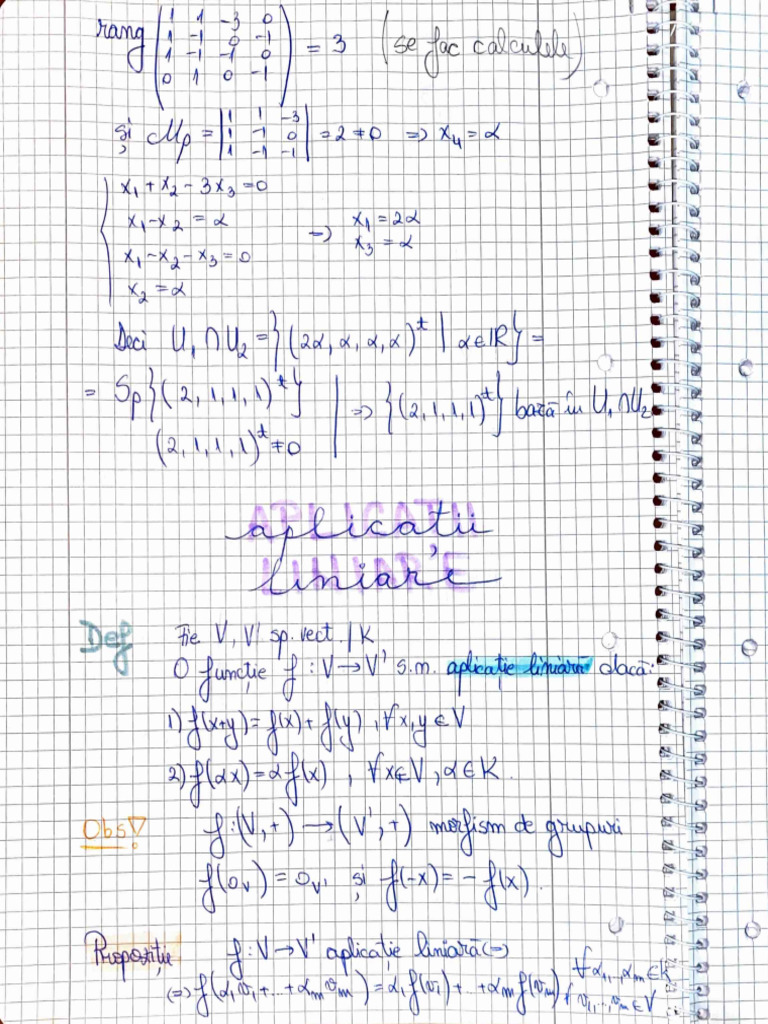 rang ( 1 1 -3 0
1 -1 0 -1
1 -1 -1 0
0 1 0 -1 ) = 3 (se fac calculele)
și Mp = | 1 1 -3
1 -1 0
1 -1 -1 | = 2 ≠ 0 => x₄ = α
{ x₁ + x₂ - 3x₃ = 0
x₁ - x₂ = α => x₁ = 2α
x₁ - x₂ - x₃ = 0 x₃ = α
x₂ = α
Deci U₁ ∩ U₂ = {(2α, α, α, α)ᵗ | α ∈ ℝ} =
= Sp{(2, 1, 1, 1)ᵗ} | => {(2, 1, 1, 1)ᵗ} bază în U₁ ∩ U₂
(2, 1, 1, 1)ᵗ ≠ 0
APLICATII
aplicatii
LINIARE
liniare
Def Fie V, V' sp. vect. / K
O funcție f : V → V' s.m. aplicație liniară dacă:
1) f(x+y) = f(x) + f(y), ∀ x, y ∈ V
2) f(αx) = α f(x), ∀ x ∈ V, α ∈ K.
Obs! f : (V, +) → (V', +) morfism de grupuri
f(0ᵥ) = 0ᵥ' și f(-x) = - f(x).
Propoziții f : V → V' aplicație liniară (=)
(=) f(α₁v₁ + ... + αₘvₘ) = α₁f(v₁) + ... + αₘf(vₘ) ∀ α₁, ..., αₘ ∈ K
∀ v₁, ..., vₘ ∈ V